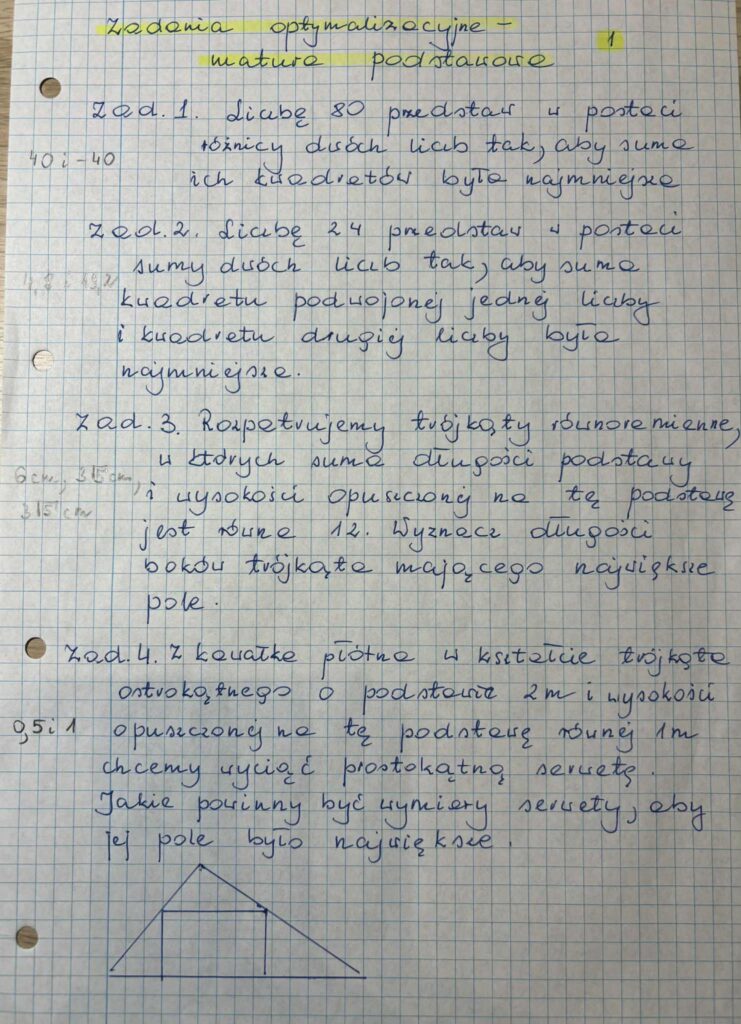 Zadania optymalizacyjne -
matura podstawowa
1
Zad. 1. Liczbę 80 przedstaw w postaci
różnicy dwóch liczb tak, aby suma
ich kwadratów była najmniejsza
40 i -40
Zad. 2. Liczbę 24 przedstaw w postaci
sumy dwóch liczb tak, aby suma
kwadratu podwojonej jednej liczby
i kwadratu drugiej liczby była
najmniejsza.
Zad. 3. Rozpatrujemy trójkąty równoramienne,
w których suma długości podstawy
i wysokości opuszczonej na tę podstawę
jest równa 12. Wyznacz długości
boków trójkąta mającego największe
pole.
6 cm, 3√5 cm,
3√5 cm
Zad. 4. Z kawałka płótna w kształcie trójkąta
ostrokątnego o podstawie 2m i wysokości
opuszczonej na tę podstawę równej 1m
chcemy wyciąć prostokątną serwetę.
Jakie powinny być wymiary serwety, aby
jej pole było największe.
0,5 i 1